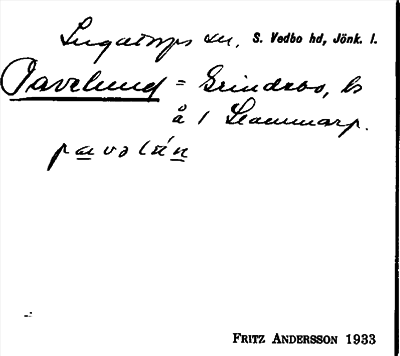 Ingatorps sn. S. Vedbo hd, Jönk. l.
Pavelund = Grindebo, ls
å 1 Stammarp.
pavəlún
FRITZ ANDERSSON 1933